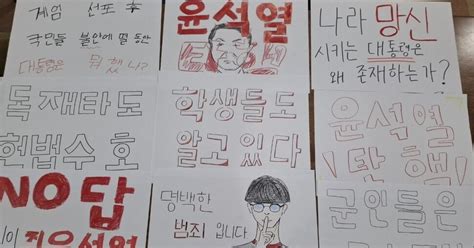 계엄 선포 후
국민들 불안에 떨 동안
대통령은 뭐 했나?
윤석열
나라 망신
시키는 대통령은
왜 존재하는가?
독재타도
헌법수호
학생들도
알고있다
윤석열
탄핵
NO답
윤석열
명백한
범죄입니다
군인들은